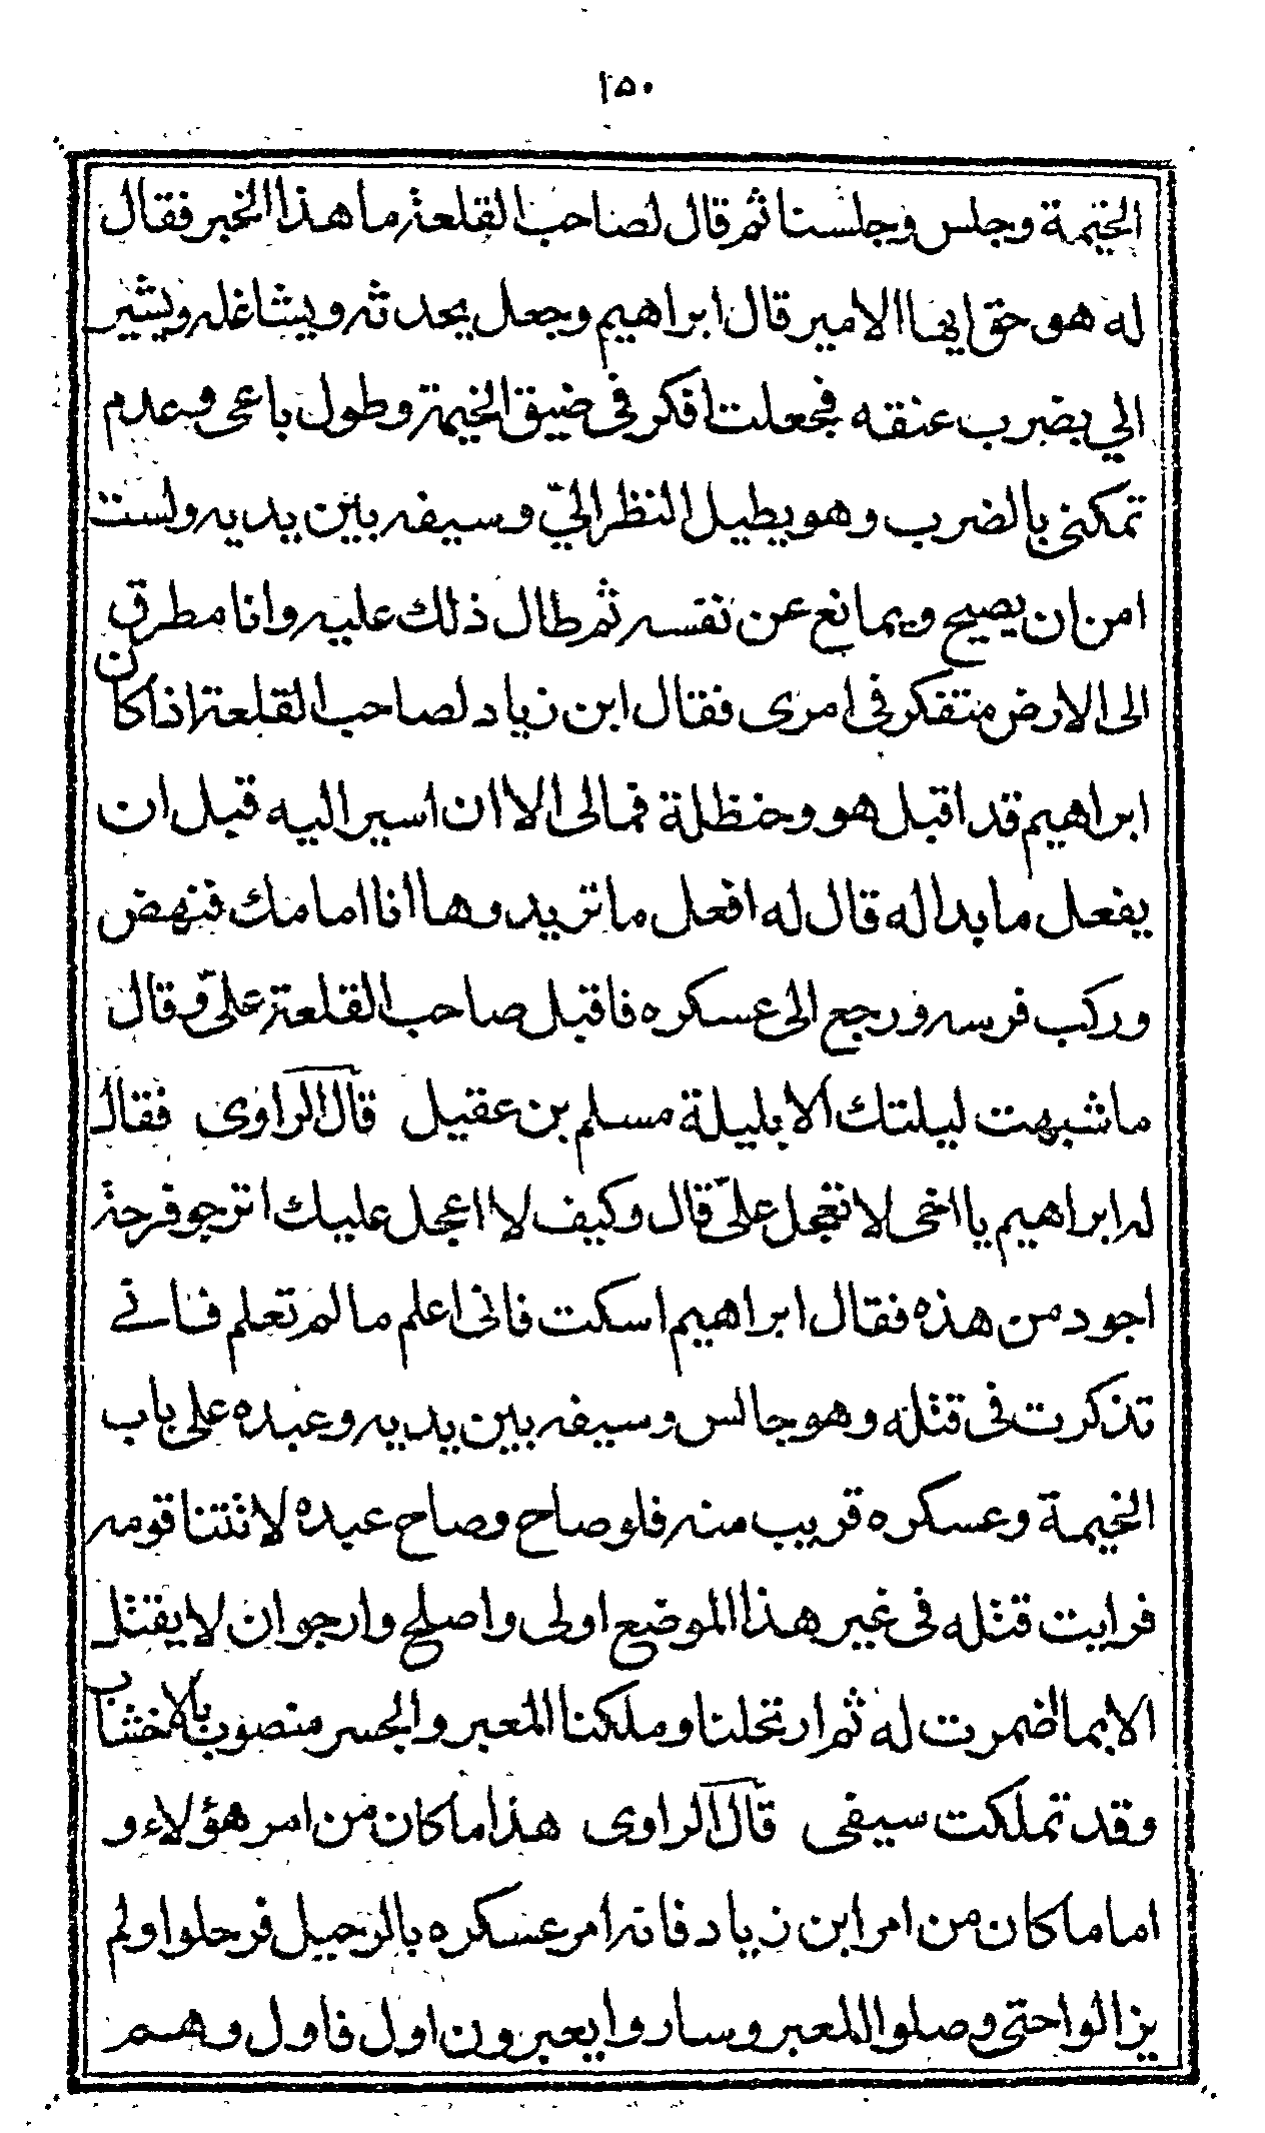 ١٥٠
الخيمة وجلس وجلسنا ثم قال لصاحب القلعة ما هذا الخبر فقال
له هو حق ايها الامير قال ابراهيم وجعل يحدثه ويشاغله ويشير
الي بضرب عنقه فجعلت افكر في ضيق الخيمة وطول باعى وعدم
تمكنى بالضرب وهو يطيل النظر اليّ وسيفه بين يديه ولست
امن ان يصيح ويمانع عن نفسه ثم طال ذلك عليه وانا مطرق
الى الارض متفكر في امرى فقال ابن زياد لصاحب القلعة اذا كان
ابراهيم قد اقبل هو وحنظلة فمالى الا ان اسير اليه قبل ان
يفعل ما بدا له قال له افعل ما تريد وها انا امامك فنهض
وركب فرسه ورجع الى عسكره فاقبل صاحب القلعة علىّ وقال
ما شبهت ليلتك الا بليلة مسلم بن عقيل قال الراوى فقال
له ابراهيم يا اخى لا تعجل علىّ قال وكيف لا اعجل عليك اترجو فرحة
اجود من هذه فقال ابراهيم اسكت فانى اعلم ما لم تعلم فانے
تذكرت فى قتله وهو جالس وسيفه بين يديه وعبده على باب
الخيمة وعسكره قريب منه فلو صاح وصاح عبده لاتتنا قومه
فرايت قتله فى غير هذا الموضع اولى واصلح وارجو ان لا يقتل
الا بما اضمرت له ثم ارتحلنا وملكنا المعبر والجسر منصوب بالاخشاب
وقد تملكت سيفى قال الراوى هذا ما كان من امر هؤلاء و
اما ما كان من امر ابن زياد فانه امر عسكره بالرحيل فرحلوا ولم
يزالوا حتى وصلوا المعبر وساروا يعبرون اول فاول وهم